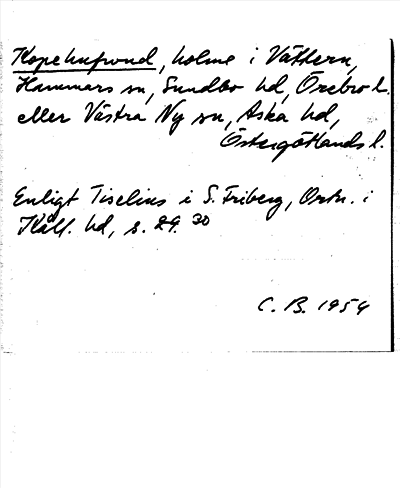 Kopehufvud, holme i Vättern,
Hammars sn, Sundbo hd, Örebro l.
eller Västra Ny sn, Aska hd,
Östergötlands l.
Enligt Tiselius i S. Friberg, Ortn. i
Käll. hd, s. 29. 30
C. B. 1954